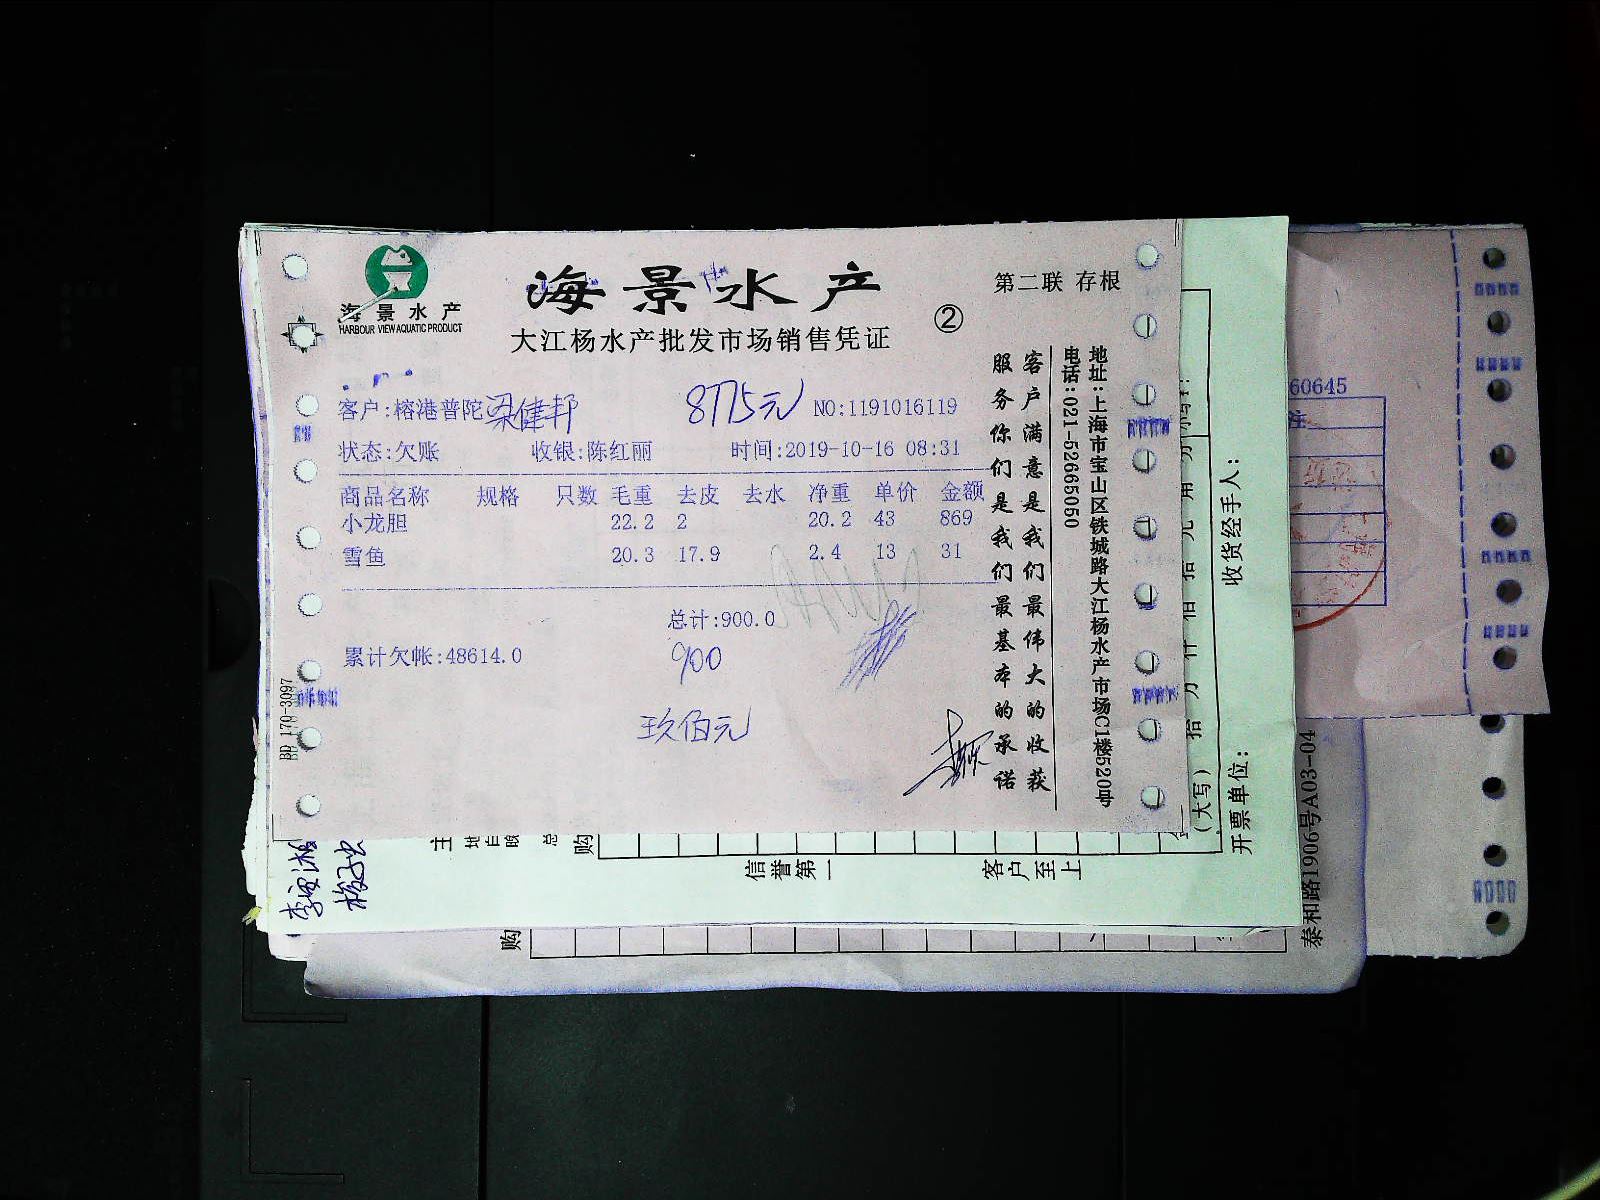 海景水产
HARBOUR VIEW AQUATIC PRODUCT
海景水产
大江杨水产批发市场销售凭证
②
第二联 存根
客户:榕港普陀梁健邦
8775元
NO:1191016119
状态:欠账 收银:陈红丽 时间:2019-10-16 08:31
商品名称 规格 只数 毛重 去皮 去水 净重 单价 金额
小龙胆 22.2 2 20.2 43 869
雪鱼 20.3 17.9 2.4 13 31
总计:900.0
累计欠帐:48614.0
900
玖佰元
BD 170-3097
客户满意是我们最伟大的收获
服务你们是我们最基本的承诺
地址:上海市宝山区铁城路大江杨水产市场C1楼520号
电话:021-52665050
收货经手人:
开票单位:
(大写) 拾 万 仟 佰 拾 元 角
信誉第一
客户至上
购
购
泰和路1906号A03-04
60645
注